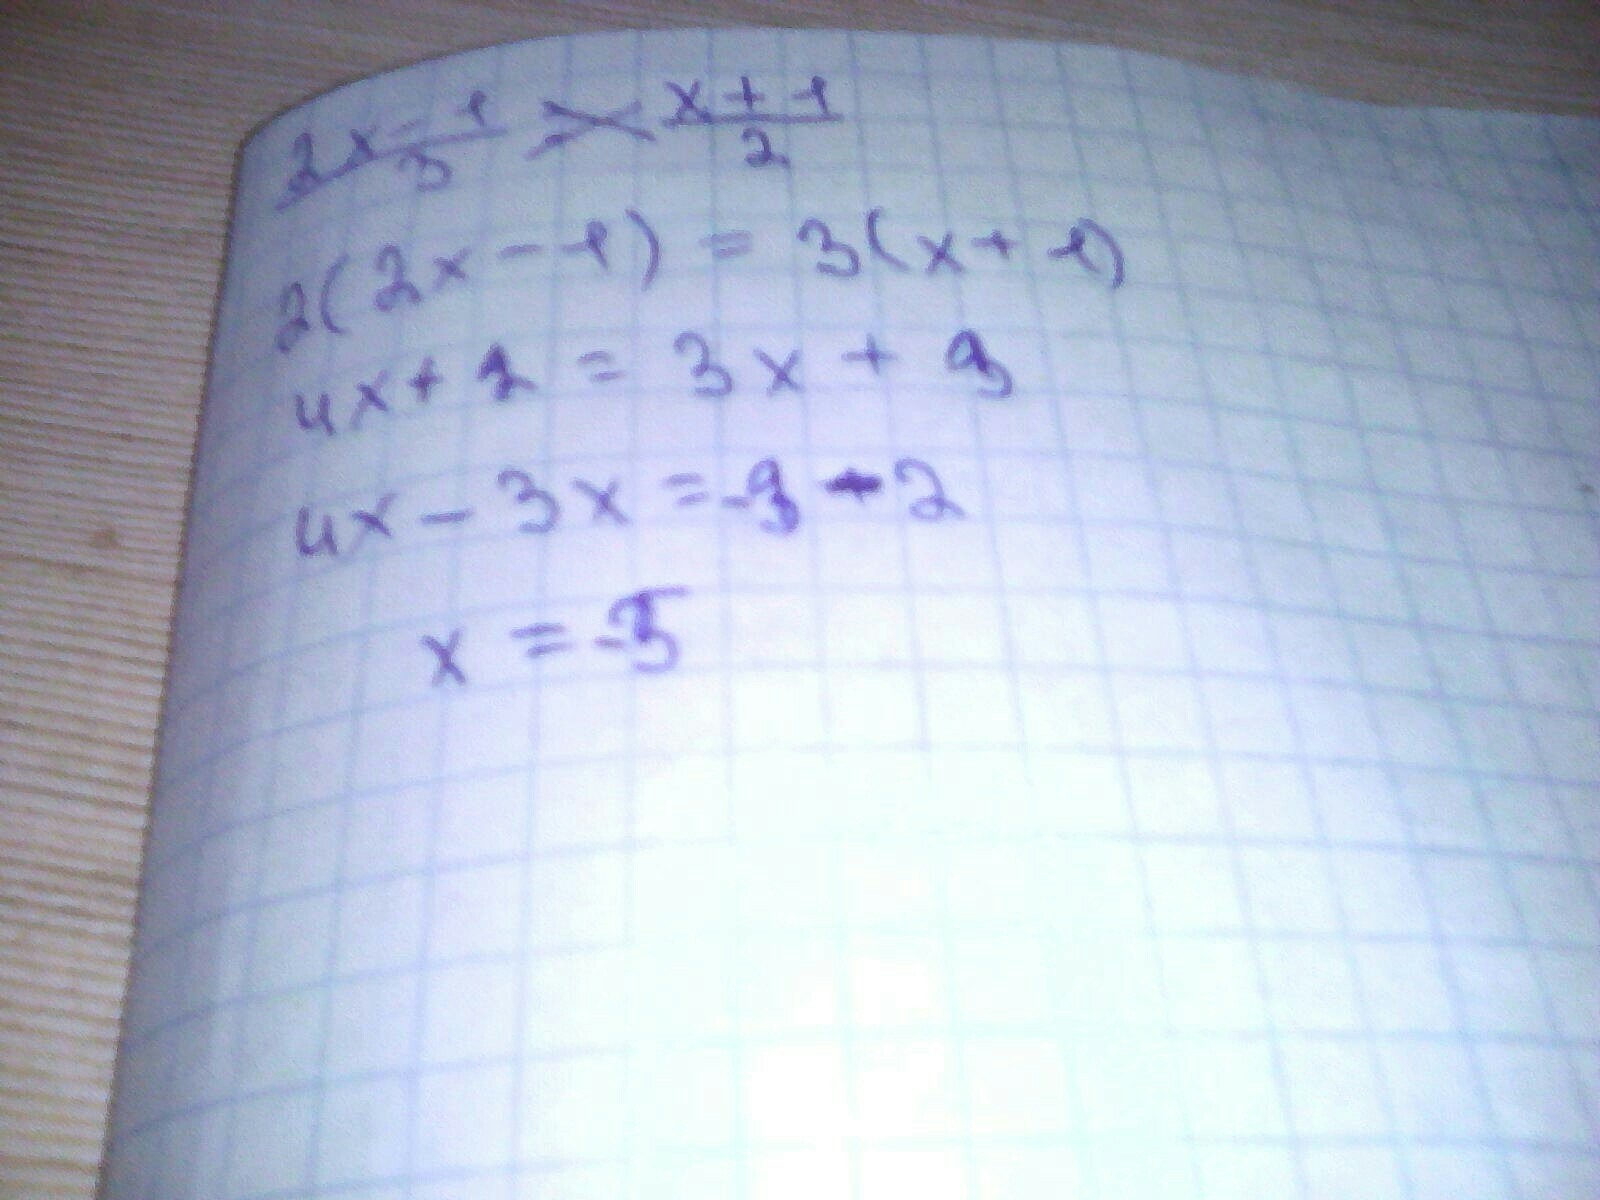 2x-1/3 = x+1/2
2(2x-1) = 3(x+1)
4x+2 = 3x+3
4x-3x = -3-2
x = -5